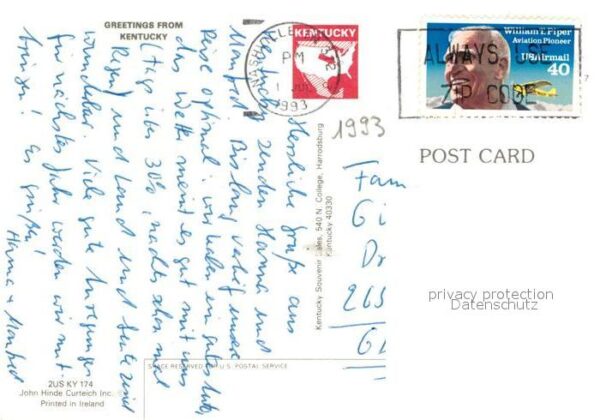 GREETINGS FROM
KENTUCKY
KENTUCKY
NASHVILLE
PM
1993
William T. Piper
Aviation Pioneer
USAirmail
40
ALWAYS USE
ZIP CODE
1993
POST CARD
Herzliche Grüße aus
senden Hanna und
Manfred. Bislang verlief unsere
Reise optimal: wir haben ein gutes Auto,
das Wetter meint es gut mit uns
(tags über 30°, nachts schon mal
) und Land und Leute sind
wunderbar. Viele gute Anregungen
für nächstes Jahr werden wir mit-
bringen! Es grüßen
Hanna + Manfred
Kentucky Souvenir Sales, 540 N. College, Harrodsburg
Kentucky 40330
Fam
Gi
Dr
265
privacy protection
Datenschutz
SPACE RESERVED FOR U.S. POSTAL SERVICE
2US KY 174
John Hinde Curteich Inc. ©
Printed in Ireland